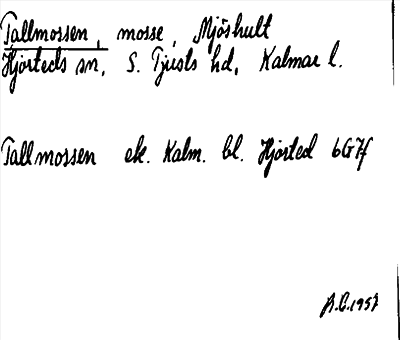 Tallmossen, mosse, Mjöshult
Hjorteds sn, S. Tjusts hd, Kalmar l.
Tallmossen ek. Kalm. bl. Hjorted 6G7f
1957